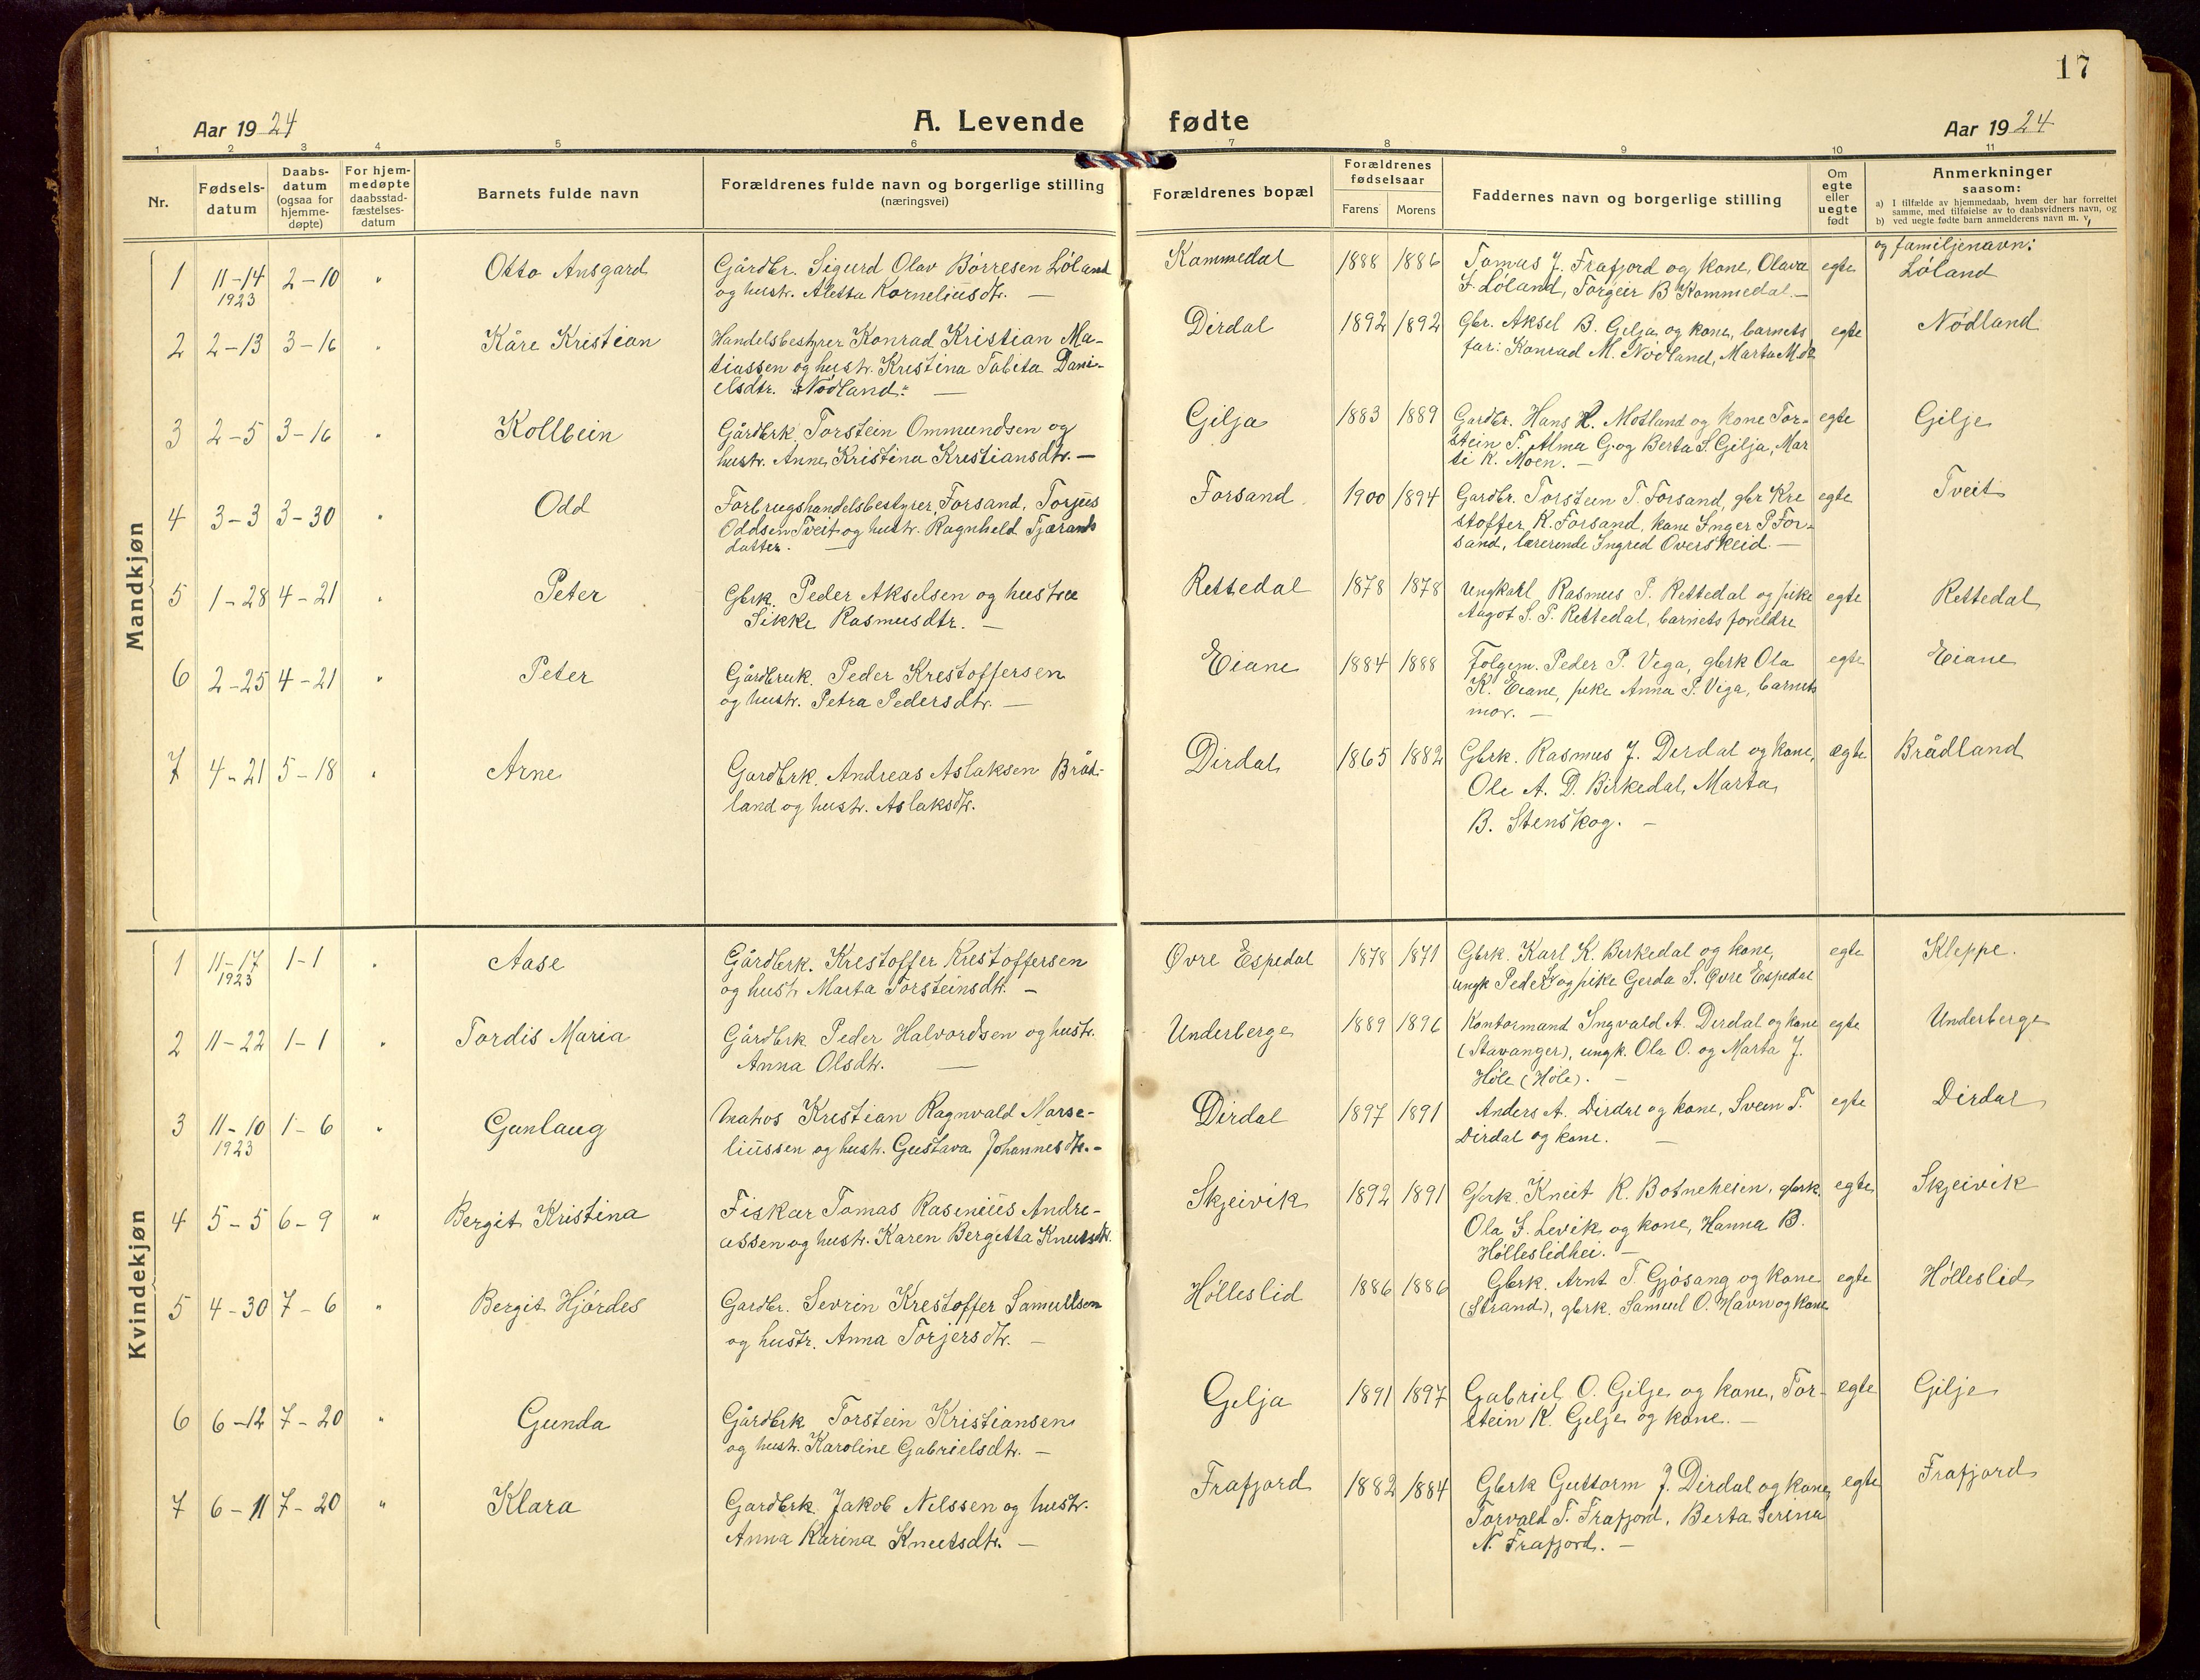 17
Aar 1924
A. Levende fødte
Aar 1924
1 2 3 4 5 6 7 8 9 10 11
Nr.
Fødsels-
datum
Daabs-
datum
(ogsaa for
hjemme-
døpte)
For hjem-
medøpte
daabsstad-
fæstelses-
datum
Barnets fulde navn
Forældrenes fulde navn og borgerlige stilling
(næringsvei)
Forældrenes bopæl
Forældrenes
fødselsaar
Farens Morens
Faddernes navn og borgerlige stilling
Om
egte
eller
uegte
født
Anmerkninger
saasom:
a) I tilfælde av hjemmedaab, hvem der har forrettet
samme, med tilføielse av to daabsvidners navn, og
b) ved uegte fødte barn anmelderens navn m. v.
og familjenavn:
Mandkjøn
1 11-14 2-10 " Otto Ansgard Gårdbr. Sigurd Olav Børresen Løland Kommedal 1888 1886 Tomas J. Frafjord og kone, Olava egte Løland
1923 og hustr. Aletta Korneliusdtr. — S. Løland, Torgeir B Kommedal.—
2 2-13 3-16 " Kåre Kristian Handelsbestyrer Konrad Kristian Ma- Dirdal 1892 1892 Gbr. Aksel B. Gilja og kone, barnets egte Nødland
tiassen og hustr. Kristina Tabita Dani- far: Konrad M. Nødland, Marta M. do
elsdtr. "Nødland" —
3 2-5 3-16 " Kolbein Gårdbrk. Torstein Ommundsen og Gilja 1883 1889 Gardbr. Hans R. Motland og kone Tor- egte Gilje
hustr. Anne Kristina Kristiansdtr. — stein T. Alma G. og Berta S. Gilja, Mar
ti K. Moen. —
4 3-3 3-30 " Odd Forbrugshandelsbestyrer, Forsand, Torjus Forsand 1900 1894 Gardbr. Torstein T. Forsand, gbr Kri egte Tveit
Oddsen Tveit og hustr. Ragnhild Tjerands stoffer R. Forsand, kone Inger P For-
datter. — sand, lærerinde Ingrid Overskeid. —
5 1-28 4-21 " Peter Gbrk. Peder Akselsen og hustru Rettedal 1878 1878 Ungkarl Rasmus P. Rettedal og pike egte Rettedal
Sikke Rasmusdtr. — Aagot S. P. Rettedal, barnets foreldre
6 2-25 4-21 " Peter Gårdbruk. Peder Kristoffersen Eiane 1884 1888 Følgem. Peder P. Vega, gbrk Ola egte Eiane
og hustr. Petra Pedersdtr. — K. Eiane, pike Anna P. Viga, barnets
mor. —
7 4-21 5-18 " Arne Gardbrk. Andreas Aslaksen Bråd- Dirdal 1865 1882 Gbrk. Rasmus J. Dirdal og kone, ægte Brådland
land og hustr. Aslaksdtr. Ole A. D. Birkedal, Marta
B. Stenskog. —
Kvindekjøn
1 11-17 1-1 " Aase Gårdbrk. Kristoffer Kristoffersen Øvre Espedal 1878 1871 Gbrk. Karl K. Berkedal og kone, egte Kleppe.
1923 og hustr Marta Torsteinsdtr. — ungk Peder og pike Gerda S. Øvre Espedal
2 11-22 1-1 " Tordis Maria Gårdbrk Peder Halvordsen og hustr. Underberge 1889 1896 Kontormand Ingvald A. Dirdal og kone egte Underberge
Anna Olsdtr. — (Stavanger), ungk. Ola O. og Marta J.
Høle (Høle). —
3 11-10 1-6 " Gunlaug Matros Kristian Ragnvald Narse- Dirdal 1897 1891 Anders A. Dirdal og kone, Svein T. egte Dirdal
1923 liussen og hustr. Gustava Johannesdtr. — Dirdal og kone. —
4 5-5 6-9 " Bergit Kristina Fiskar Tomas Rasenius Andre- Skjeivik 1892 1891 Gbrk. Knut R. Botneheien, gbrk. egte Skjeivik
assen og hustr. Karen Bergitta Knutsdtr. Ola J. Levik og kone, Hanna B.
Hølleslidhei. —
5 4-30 7-6 " Bergit Hjørdes Gardbr. Sevrin Kristoffer Samuelsen Hølleslid 1886 1886 Gbrk. Arnt T. Gjøsang og kone egte Hølleslid
og hustr. Anna Torjersdtr. — (Strand), gbrk. Samuel O. Havn og kone
6 6-12 7-20 " Gunda Gårdbrk Torstein Kristiansen Gilja 1891 1897 Gabriel O. Gilje og kone, Tor- egte Gilje
og hustr. Karoline Gabrielsdtr. — stein K. Gilje og kone. —
7 6-11 7-20 " Klara Gardbrk. Jakob Nilssen og hustr. Frafjord 1882 1884 Gbrk Guttorm J. Dirdal og kone, egte Frafjord
Anna Karina Knutsdtr. — Torvald T. Frafjord, Berta Serina
N. Frafjord. —